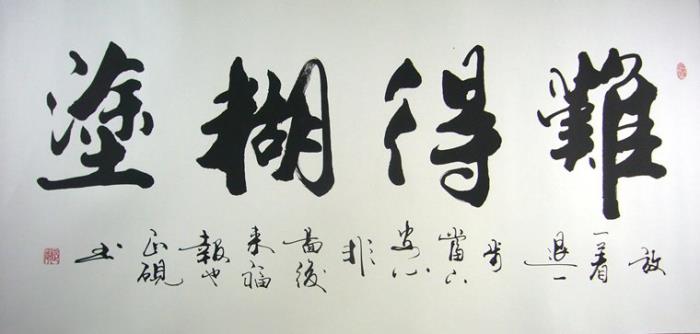 難得糊塗
放一着退一步當下安心非圖後來福報也 正硯書